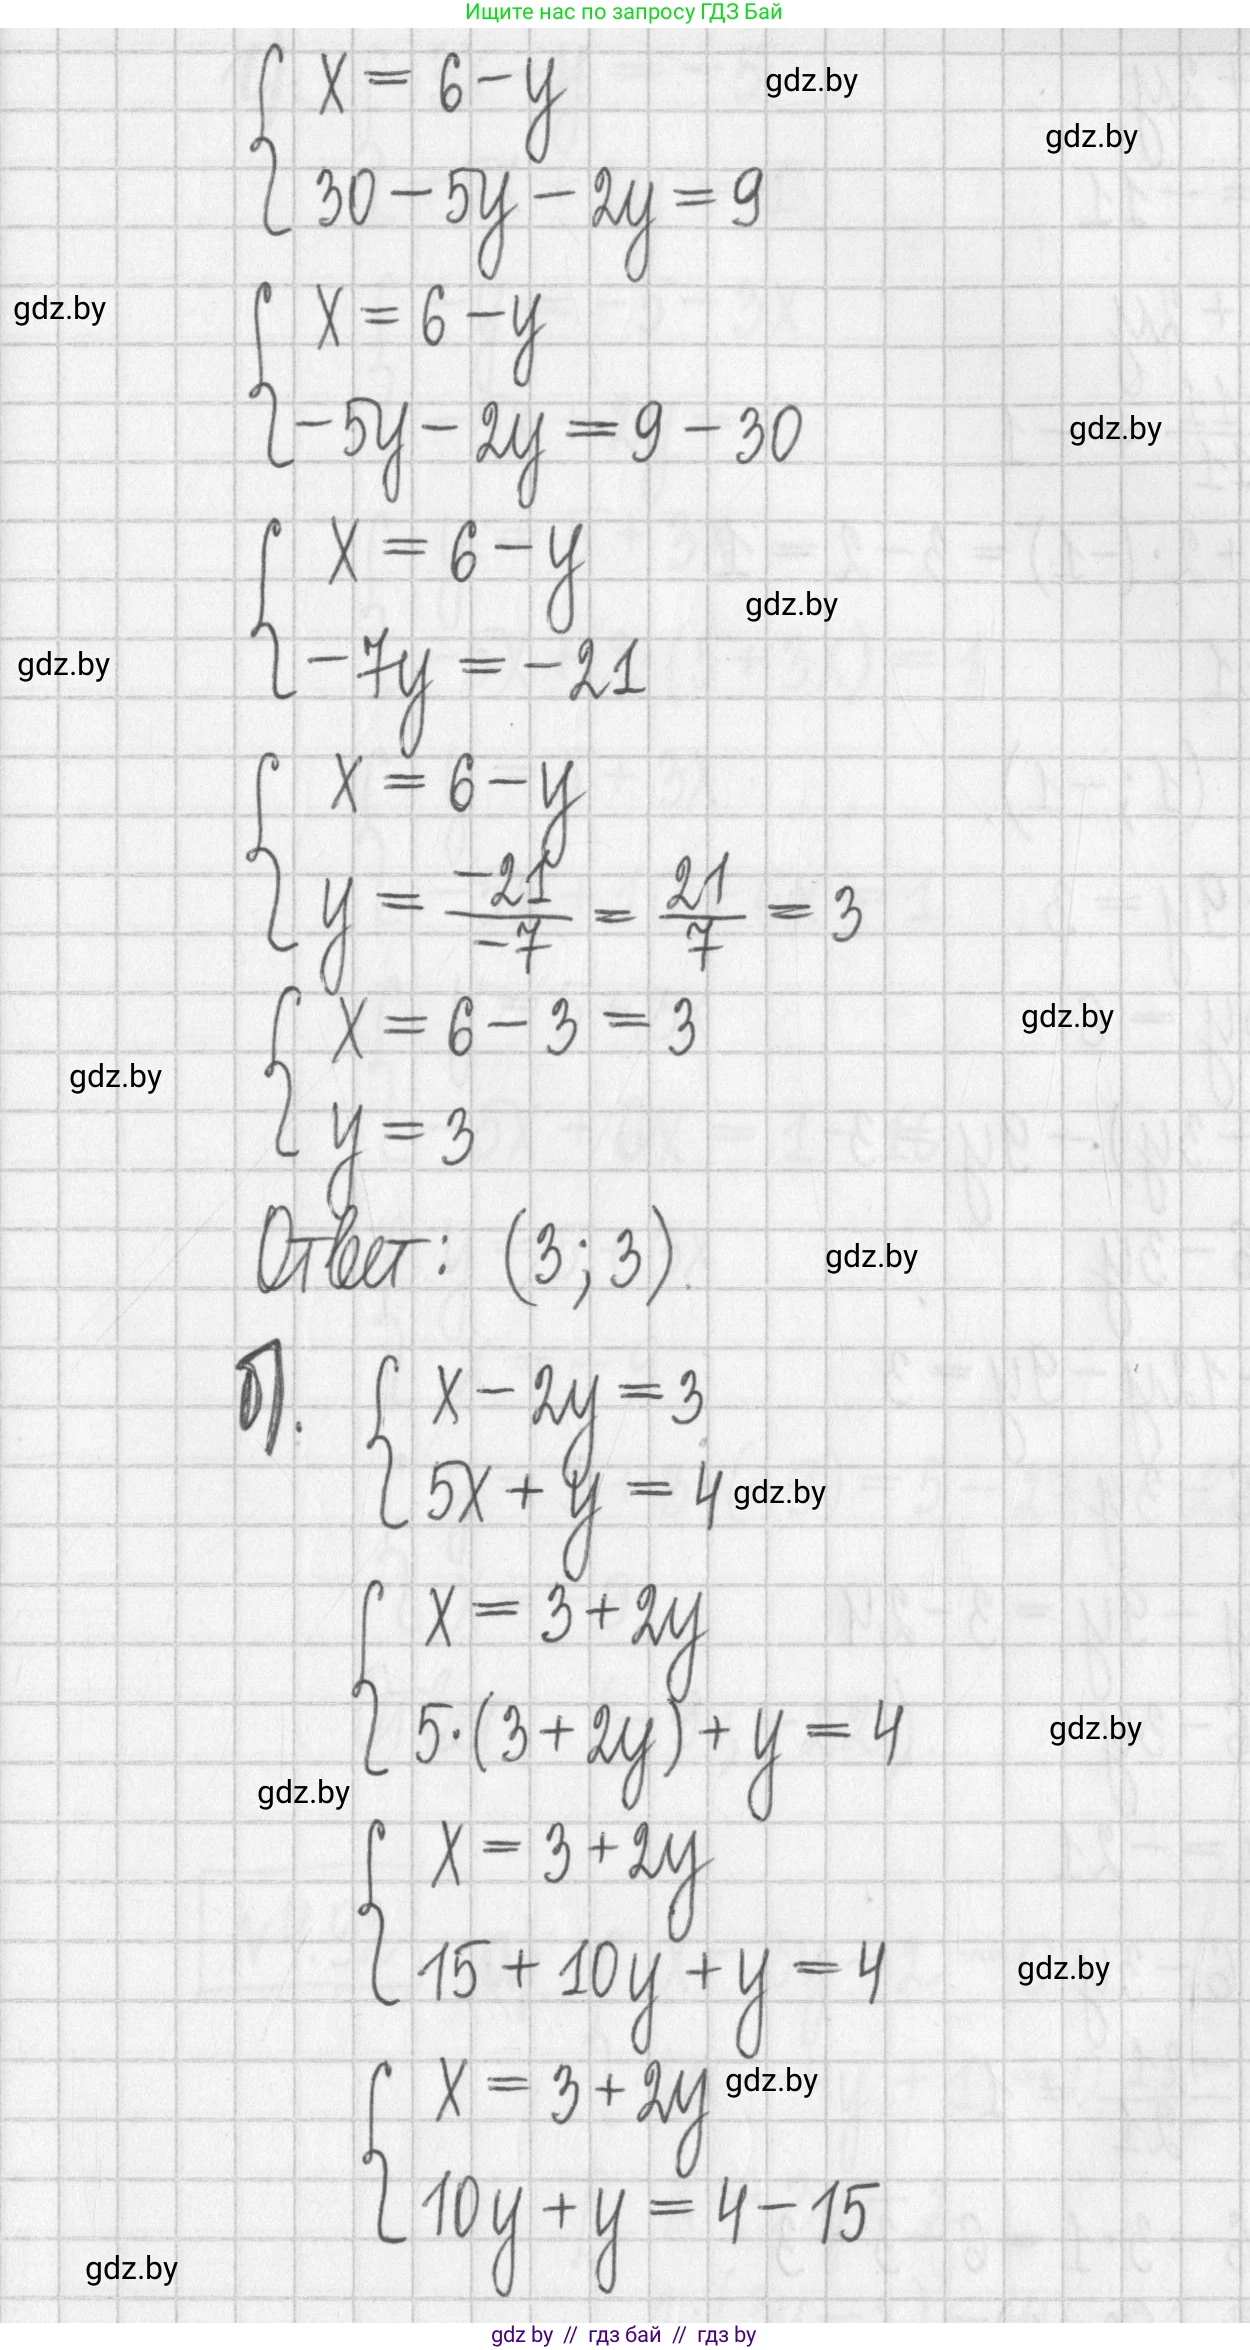 Ищите нас по запросу ГДЗ Бай
x = 6 - y
gdz.by
gdz.by
30 - 5y - 2y = 9
gdz.by
x = 6 - y
-5y - 2y = 9 - 30
gdz.by
x = 6 - y
gdz.by
gdz.by
-7y = -21
x = 6 - y
y = -21/-7 = 21/7 = 3
x = 6 - 3 = 3
gdz.by
gdz.by
y = 3
Ответ: (3; 3).
gdz.by
б). x - 2y = 3
5x + y = 4
gdz.by
x = 3 + 2y
5·(3 + 2y) + y = 4
gdz.by
gdz.by
x = 3 + 2y
15 + 10y + y = 4
gdz.by
x = 3 + 2y
gdz.by
10y + y = 4 - 15
gdz.by
gdz by // гдз бай // гдз by